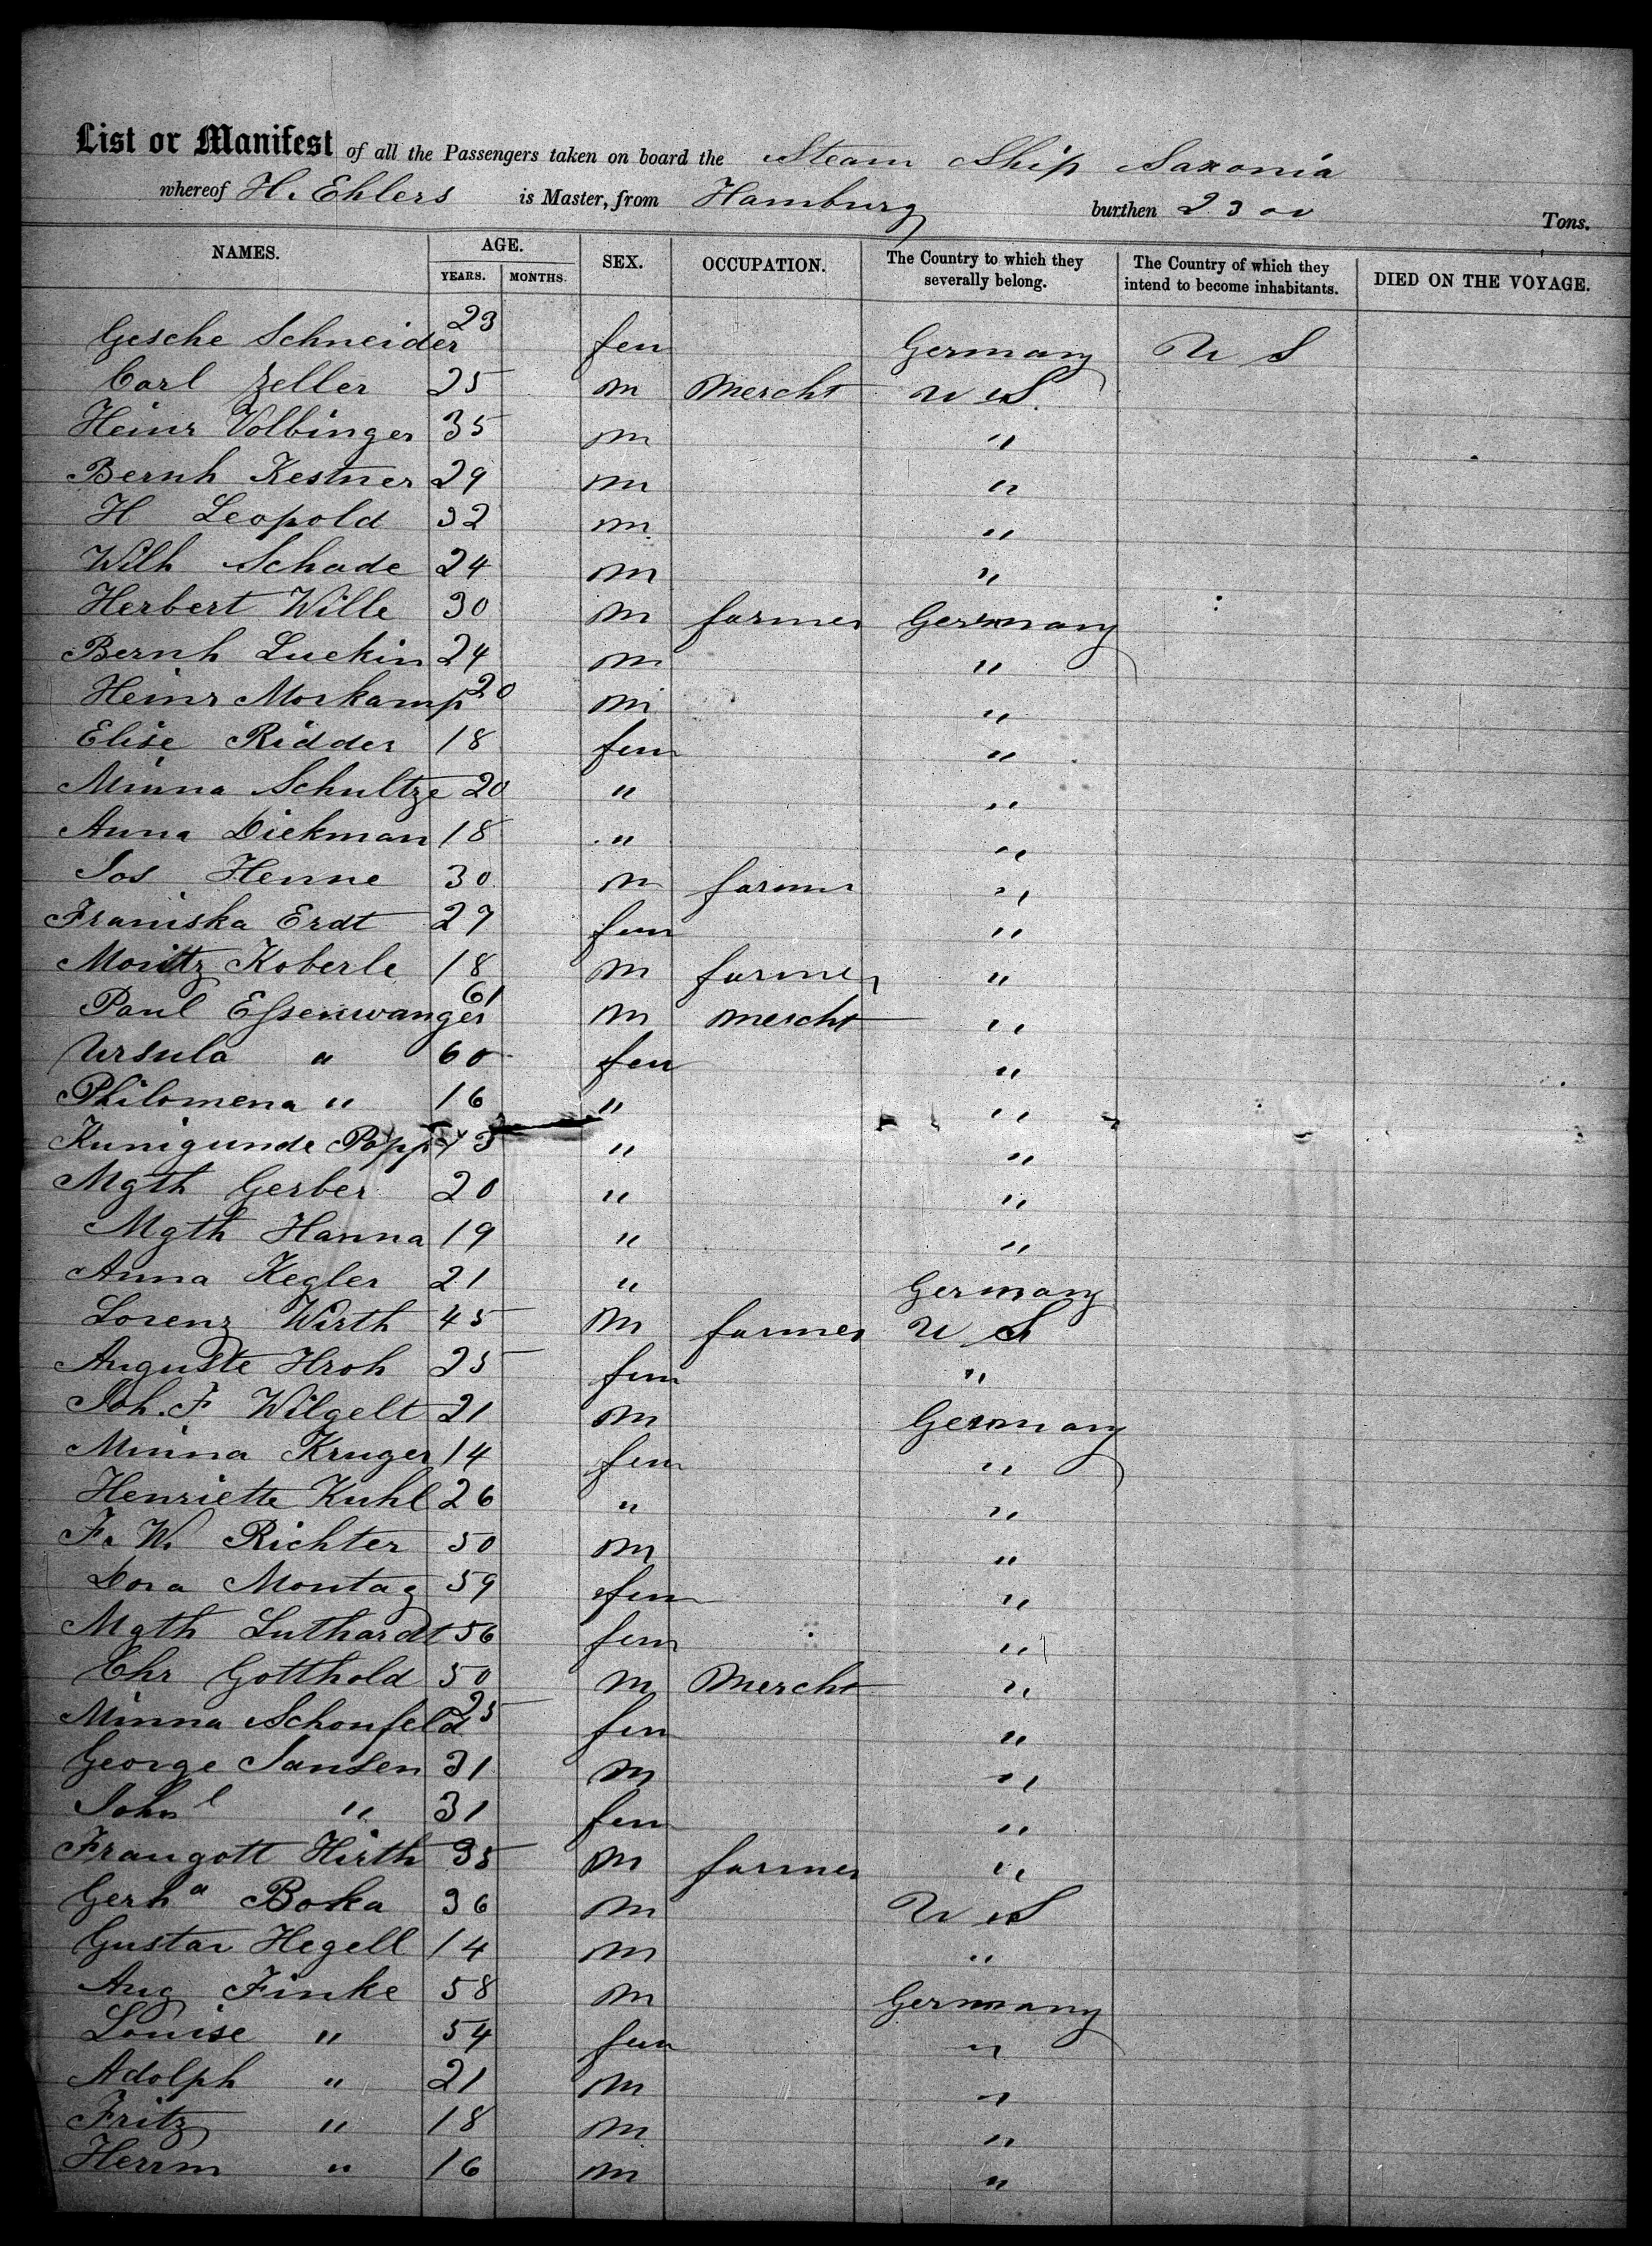 List or Manifest of all the Passengers taken on board the Steam Ship Saxonia
whereof H. Ehlers is Master, from Hamburg burthen 2300 Tons.
NAMES. AGE. SEX. OCCUPATION. The Country to which they severally belong. The Country of which they intend to become inhabitants. DIED ON THE VOYAGE.
YEARS. MONTHS.
Gesche Schneider 23 fem Germany U S
Carl Zeller 25 m Mercht U S.
Heinr Volbinger 35 m "
Bernh Kestner 29 m "
H Leopold 32 m "
Wilh Schade 24 m "
Herbert Wille 30 m farmer Germany
Bernh Luekin 24 m "
Heinr Morkamp 20 m "
Elise Ridder 18 fem "
Minna Schultze 20 " "
Anna Diekman 18 " "
Jos Henne 30 m farmer "
Franiska Erdt 27 fem "
Moritz Koberle 18 m farmer "
Paul Essenwanger 61 m Mercht "
Ursula " 60 fem "
Philomena " 16 " "
Kunigunde Popp 43 " "
Mgth Gerber 20 " "
Mgth Hanna 19 " "
Anna Kegler 21 " Germany
Lorenz Wirth 45 m farmer U S
Auguste Hroh 25 fem "
Joh. F Wilgelt 21 m Germany
Minna Kruger 14 fem "
Henriette Kuhl 26 " "
F. W. Richter 50 m "
Dora Montag 59 fem "
Mgth Luthardt 56 fem "
Chr Gotthold 50 m Mercht "
Minna Schonfeld 25 fem "
George Jansen 31 m "
Joh " 31 fem "
Fraugott Hirth 35 m farmer "
Gerha Boka 36 m U S
Gustav Hegell 14 m "
Aug Finke 58 m Germany
Louise " 54 fem "
Adolph " 21 m "
Fritz " 18 m "
Herrm " 16 m "